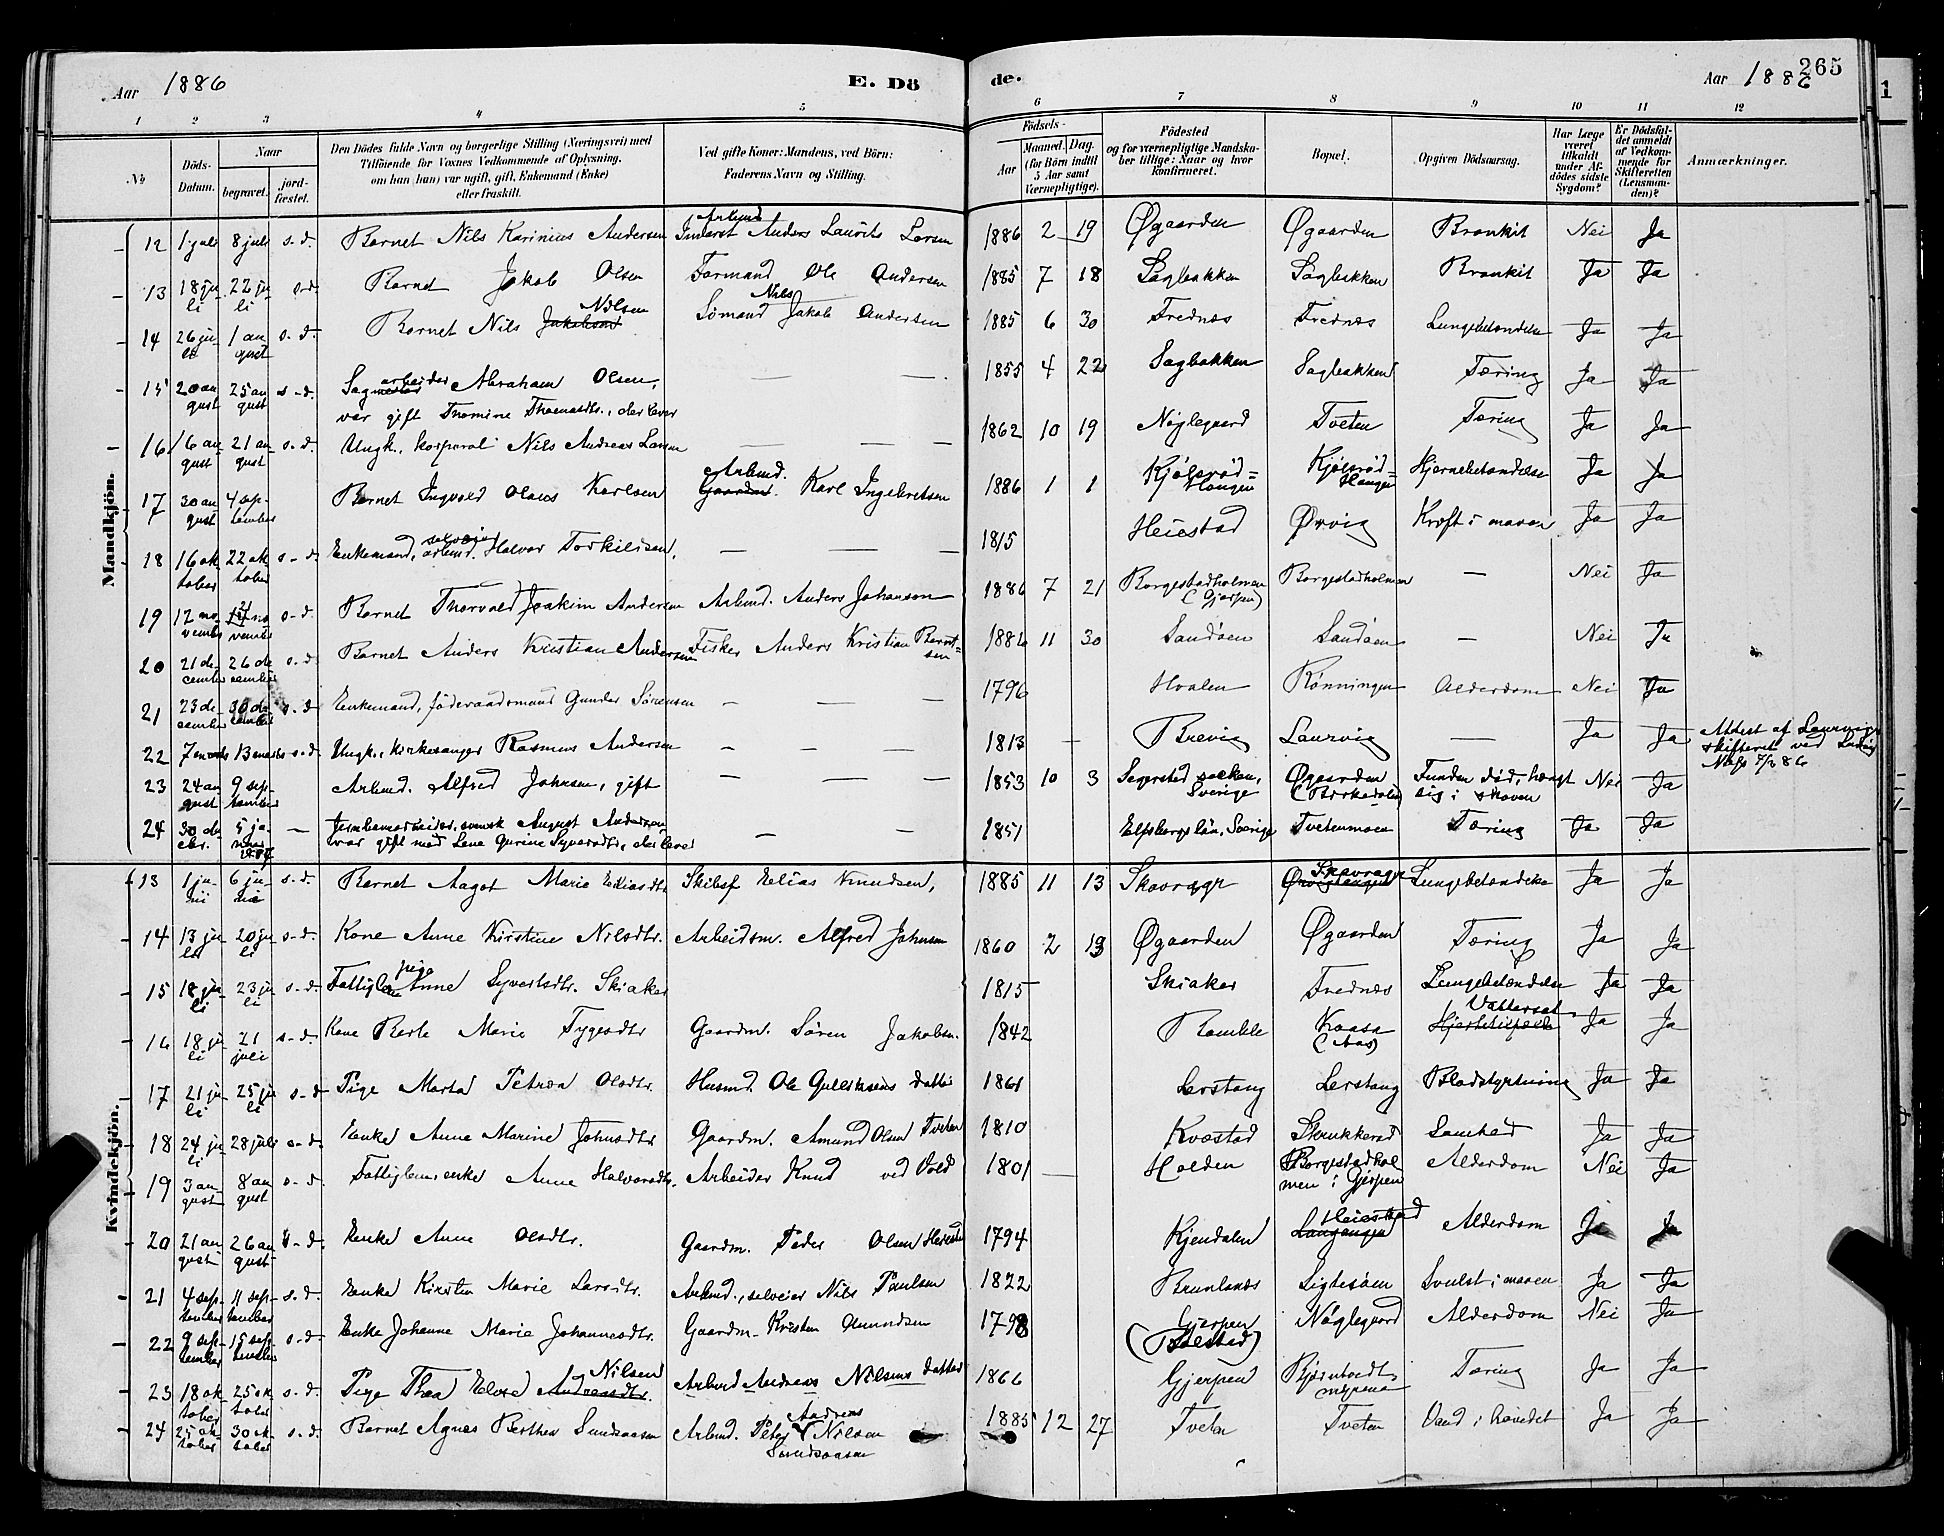 Aar 1886 E. Dö de. Aar 1886 265
1 2 3 4 5 6 7 8 9 10 11 12
№ Döds-Datum. Naar begravet. jord-fæstet. Den Dödes fulde Navn og borgerlige Stilling (Næringsvei) med Tilföiende for Voxnes Vedkommende af Oplysning, om han (hun) var ugift, gift, Enkemand (Enke) eller fraskilt. Ved gifte Koner: Mandens, ved Börn: Faderens Navn og Stilling. Födsels- Aar Maaned. Dag. (for Börn indtil 5 Aar samt Værnepligtige). Födested og for værnepligtige Mandska-ber tillige: Naar og hvor konfirmeret. Bopæl. Opgiven Dödsaarsag. Har Læge været tilkaldt under Af-dödes sidste Sygdom? Er Dödsfal-det anmeldt af Vedkom-mende for Skifteretten (Lensman-den)? Anmærkninger.
Mandkjön.
12 1 juli 8 juli s.d. Barnet Nils Karinius Andersen Arbmd Anders Laurits Larsen 1886 2 19 Øgaarden Øgaarden Bronkit Nei Ja
13 18 juli 22 juli s.d. Barnet Jakob Olsen Formand Ole Andersen 1885 7 18 Sagbakken Sagbakken Bronkit Ja Ja
14 26 juli 1 august s.d. Barnet Nils Jakobsen Nilsen Sömand Nils Jakob Andersen 1885 6 30 Frednæs Frednæs Lungebetændelse Ja Ja
15 20 august 25 august s.d. Sagarbeider Abraham Olsen, — — 1855 4 22 Sagbakken Sagbakken Tæring Ja Ja
var gift Thomine Thomasdtr., der lever
16 16 august 21 august s.d. Ungk., korporal Nils Andreas Larsen — — — 1862 10 19 Nøglegaard Tveten Tæring Ja Ja
17 30 august 4 september Barnet Ingvald Olaus Karlsen Gaardm. Arbmd. Karl Ingebretsen 1886 1 1 Kjølsrød-Haugen Kjølsrød-Haugen Hjernebetændelse Ja Ja
18 16 oktober 22 oktober s.d. Enkemand, selveier arbmd. Halvor Torkildsen, — — — 1815 Heiestad Ørvig Kræft i maven Ja Ja
19 12 november 21 november s.d. Barnet Thorvald Joakim Andersen Arbmd. Anders Johansen 1886 7 21 Borgestadholmen (Gjerpen) Borgestadholmen — Nei Ja
20 21 december 26 december s.d. Barnet Anders Kristian Andersen Fisker Anders Kristian Berntsen 1886 11 30 Sandøen Sandøen — Nei Ja
21 23 december 30 december s.d. Enkemand, föderaadsmand Gunder Sörensen — — — 1796 Hvalen Rønningen Alderdom Nei Ja
22 7 marts 13 marts s.d. Ungk., kirkesanger Rasmus Andersen — — — 1813 — Brevig Laurvig — Ja Ja Attest af Laurvigs skifteret ved
23 24 august 9 september Arbmd. Alfred Johnsen, gift — — — 1853 10 3 Segerstad socken, Sverige Øgaarden (Birkedalen) Funden død, hængt sig i skoven Nei Ja
24 30 decbr. 5 januar 1887 — Jernbanearbeider, svensk August Andersen — — 1851 Elfsborgs län, Sverige Tvetenmoen Tæring Ja Ja
var gift med Lene Gurine Syversdtr., der lever
Kvindekjön.
13 1 juni 6 juni s.d. Barnet Aagot Marie Eliasdtr. Skibsf Elias Knudsen, 1885 11 13 Skavrager Ørvigtangen Skavrager Lungebetændelse Ja Ja
14 13 juli 20 juli s.d. Kone Anne Kirstine Nilsdtr. Arbeidsm. Alfred Johnsen 1860 2 13 Øgaarden Øgaarden Tæring Ja Ja
15 18 juli 23 juli s.d. Fattiglem pige Anne Syvertsdtr. Skiaker 1815 Skiaker Frednæs Lungebetændelse Ja Ja
16 18 juli 21 juli s.d. Kone Berte Marie Tygesdtr Gaardm. Sören Jakobsen. 1842 Bamble Kaasa (Aas) Hjertetilfælde Vattersot Ja Ja
17 21 juli 25 juli s.d. Pige Marta Petrea Olsdtr. Husmd. Ole Gulliksens datter 1861 Lerstang Lerstang Blodstyrtning Ja Ja
18 24 juli 28 juli s.d. Enke Anne Marine Johnsdtr Gaardm. Amund Olsen Tveten 1810 Kvæstad Skrukkerød Samhed Ja Ja
19 3 august 8 august s.d. Fattiglem, enke Anne Halvorsdtr. Arbeider Knud ved Vold 1801 Holden Borgestadholmen i Gjerpen Alderdom Nei Ja
20 21 august 26 august s.d. Enke Anne Olsdtr. Gaardm. Peder Olsen Heiestad 1794 Kjendalen Langangen Heiestad Alderdom Ja Ja
21 4 september 11 september s.d. Enke Kirstin Marie Larsdtr. Arbmd., selveier Nils Paulsen 1822 Brunlanæs Ligtesöen Svulst i maven Ja Ja
22 9 september 15 september s.d. Enke Johanne Marie Johannesdtr. Gaardm. Kristen Amundsen 1798 Gjerpen (Bølestad) Nøglegaard Alderdom Nei Ja
23 18 oktober 25 oktober s.d. Pige Thea Elvine Andreasdtr. Nilsen Arbmd Andreas Nilsens datter 1866 Gjerpen Bjørntvedtmyrene Tæring Ja Ja
24 25 oktober 30 oktober s.d. Barnet Agnes Berthea Sundsaasen Arbmd. Peter Andreas Nilsen Sundsaasen 1885 12 27 Tveten Tveten Vand i hovedet Ja Ja